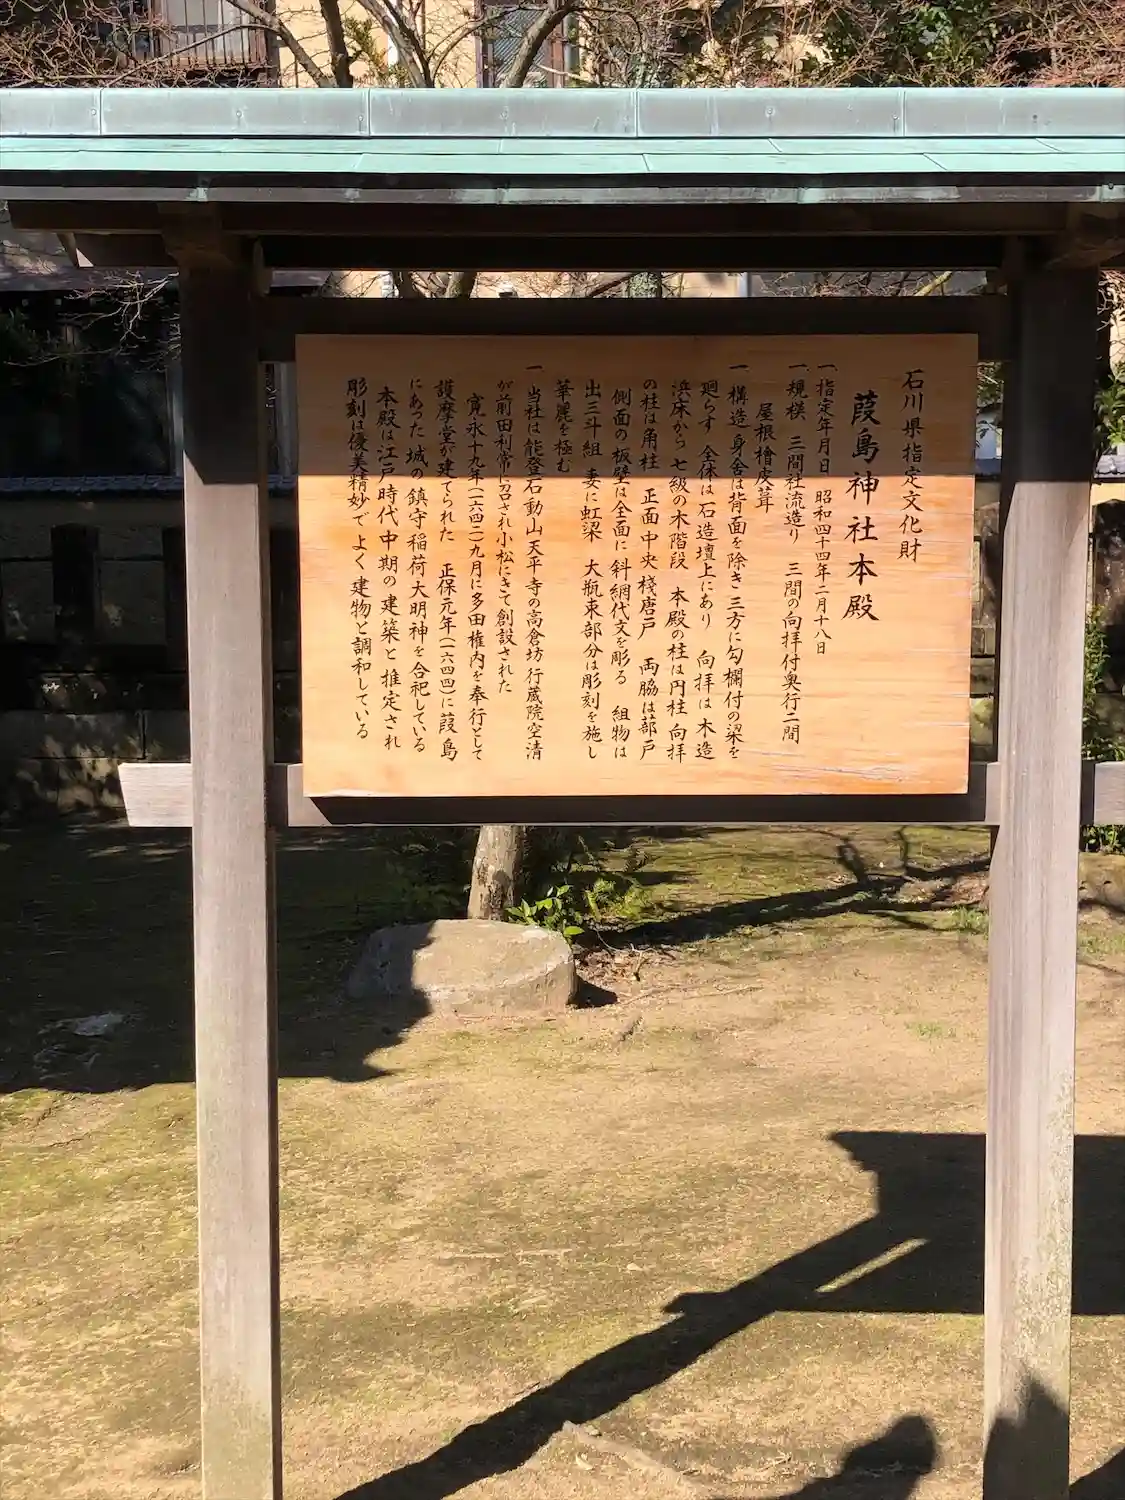 石川県指定文化財
葭島神社本殿
一、指定年月日 昭和四十四年二月十八日
一、規模 三間社流造り 三間の向拝付奥行二間
屋根檜皮葺
一 構造 身舎は背面を除き三方に勾欄付の梁を
廻らす 全体は石造壇上にあり 向拝は木造
浜床から七級の木階段 本殿の柱は円柱 向拝
の柱は角柱 正面中央桟唐戸 両脇は蔀戸
側面の板壁は全面に斜網代文を彫る 組物は
出三斗組 妻に虹梁 大瓶束部分は彫刻を施し
華麗を極む
一 当社は能登石動山天平寺の高倉坊行蔵院空清
が前田利常に召され小松にきて創設された
寛永十九年(一六四二)九月に多田権内を奉行として
護摩堂が建てられた 正保元年(一六四四)に葭島
にあった城の鎮守稲荷大明神を合祀している
本殿は江戸時代中期の建築と推定され
彫刻は優美精妙でよく建物と調和している